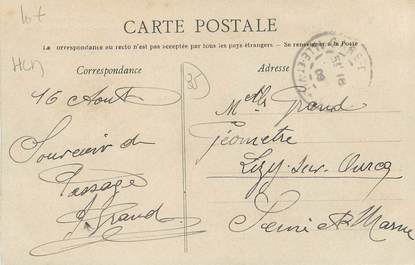 lot
CARTE POSTALE
La correspondance au recto n'est pas acceptée par tous les pays étrangers. — Se renseigner à la Poste
Correspondance
Adresse
35
16 Aout
Souvenir de
Passage
Grand
Grand
Géometre
Lizy-sur-Ourcq
Seine & Marne